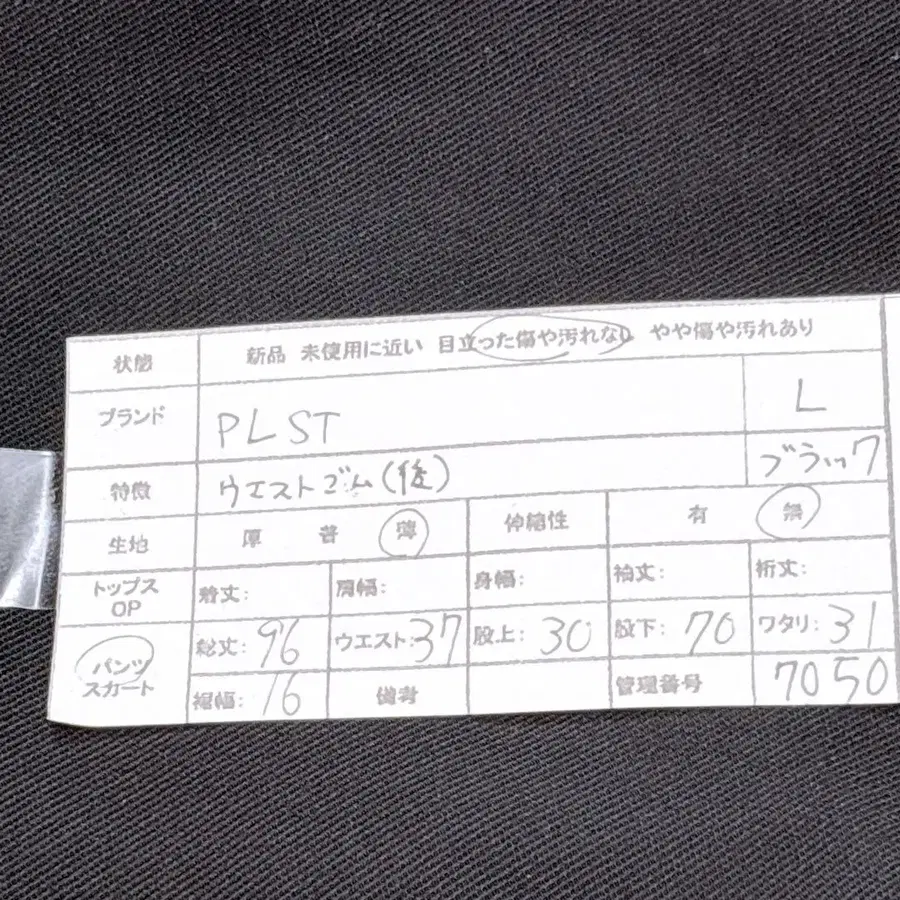 状態 新品 未使用に近い 目立った傷や汚れなし やや傷や汚れあり
ブランド PLST L
特徴 ウエストゴム(後) ブラック
生地 厚 普 薄 伸縮性 有 無
トップス OP 着丈: 肩幅: 身幅: 袖丈: 裄丈:
パンツ スカート 総丈: 96 ウエスト: 37 股上: 30 股下: 70 ワタリ: 31
裾幅: 16 備考 管理番号 7050